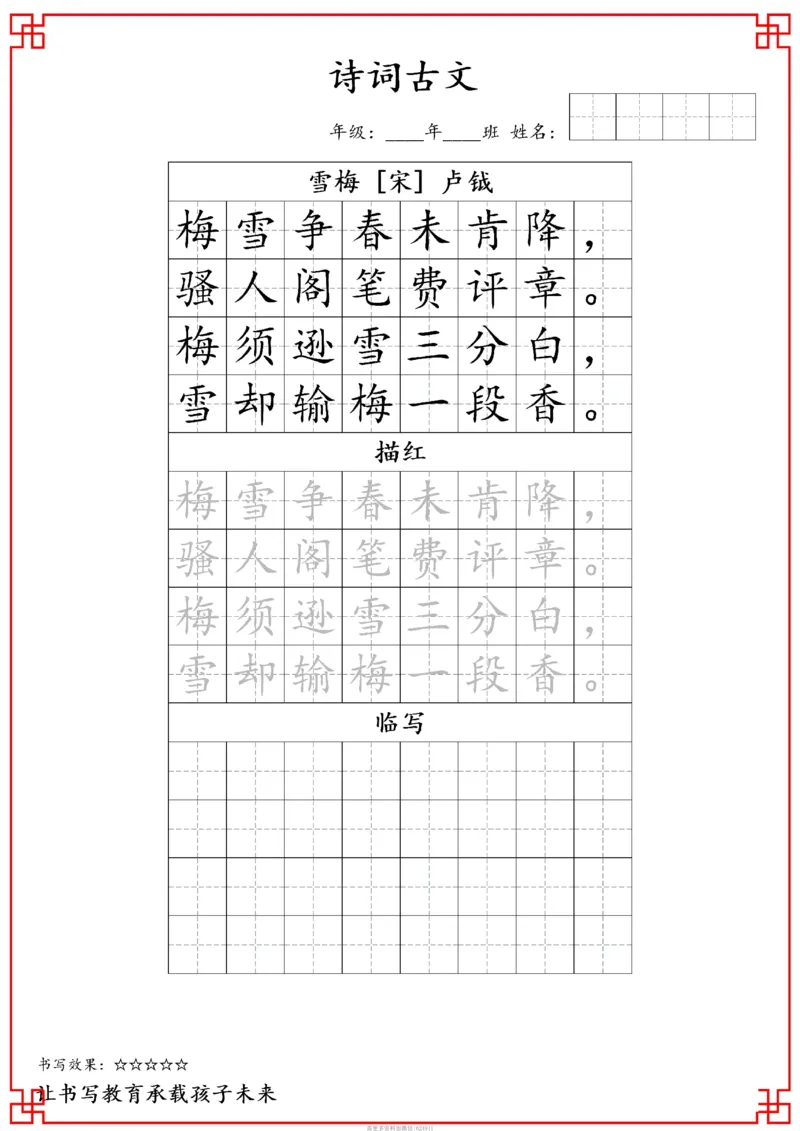 诗词古文
年级：____年____班 姓名：
雪梅 [宋] 卢钺
梅雪争春未肯降，
骚人阁笔费评章。
梅须逊雪三分白，
雪却输梅一段香。
描红
梅雪争春未肯降，
骚人阁笔费评章。
梅须逊雪三分白，
雪却输梅一段香。
临写
书写效果：☆☆☆☆☆
让书写教育承载孩子未来